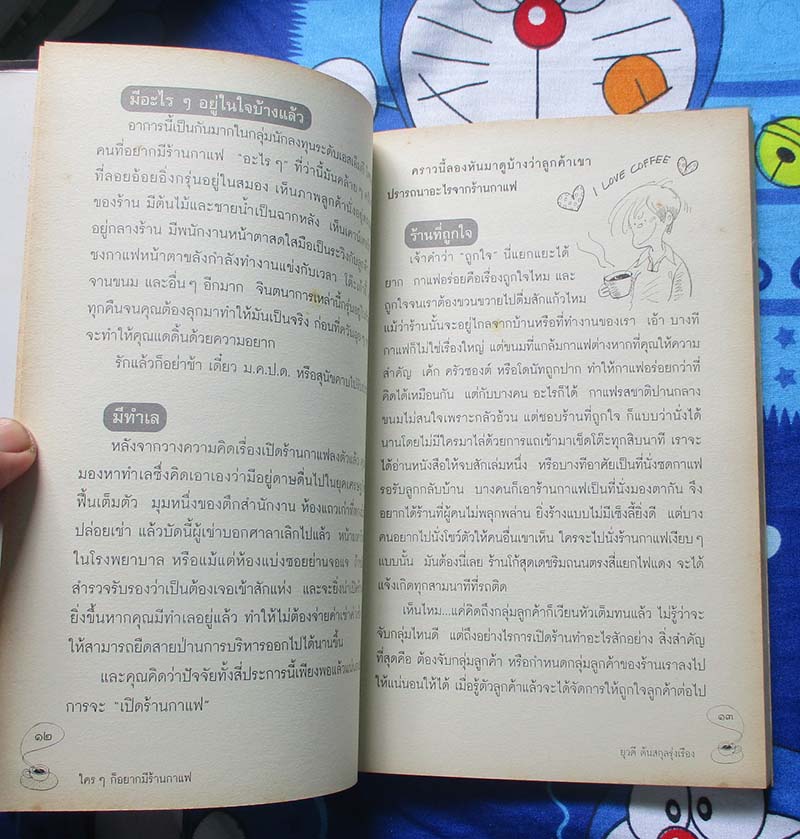 มีอะไร ๆ อยู่ในใจบ้างแล้ว
อาการนี้เป็นกันมากในกลุ่มนักลงทุนระดับเอสเอ็มอี
คนที่อยากมีร้านกาแฟ "อะไร ๆ" ที่ว่านี้มันคล้าย ๆ
ที่ลอยอ้อยอิ่งกรุ่นอยู่ในสมอง เห็นภาพลูกค้านั่งอยู่
ของร้าน มีต้นไม้และชายน้ำเป็นฉากหลัง
อยู่กลางร้าน มีพนักงานหน้าตาสดใสมือเป็นระวิงกับ
ชงกาแฟหน้าตาขลังกำลังทำงานแข่งกับเวลา
จานขนม และอื่นๆ อีกมาก จินตนาการเหล่านี้กรุ่นอยู่
ทุกคืนจนคุณต้องลุกมาทำให้มันเป็นจริง ก่อนที่ควัน
จะทำให้คุณแดดิ้นด้วยความอยาก
รักแล้วก็อย่าช้า เดี๋ยว ม.ค.ป.ด. หรือสุนัขคาบไป
มีทำเล
หลังจากวางความคิดเรื่องเปิดร้านกาแฟลงตัวแล้ว
มองหาทำเลซึ่งคิดเอาเองว่ามีอยู่ดาษดื่นไปในยุค
ฟื้นเต็มตัว มุมหนึ่งของตึกสำนักงาน ห้องแถวเก่า
ปล่อยเช่า แล้วบัดนี้ผู้เช่าบอกศาลาเลิกไปแล้ว
ในโรงพยาบาล หรือแม้แต่ห้องแบ่งซอยย่านจอแจ
สำรวจรับรองว่าเป็นต้องเจอเข้าสักแห่ง และจะยิ่ง
ยิ่งขึ้นหากคุณมีทำเลอยู่แล้ว ทำให้ไม่ต้องจ่ายค่าเช่า
ให้สามารถยืดสายป่านการบริหารออกไปได้นานขึ้น
และคุณคิดว่าปัจจัยทั้งสี่ประการนี้เพียงพอแล้ว
การจะ "เปิดร้านกาแฟ"
๑๒
ใคร ๆ ก็อยากมีร้านกาแฟ
คราวนี้ลองหันมาดูบ้างว่าลูกค้าเขา
ปรารถนาอะไรจากร้านกาแฟ
I LOVE COFFEE
ร้านที่ถูกใจ
เจ้าคำว่า "ถูกใจ" นี่แยกแยะได้
ยาก กาแฟอร่อยคือเรื่องถูกใจไหม และ
ถูกใจจนเราต้องขวนขวายไปดื่มสักแก้วไหม
แม้ว่าร้านนั้นจะอยู่ไกลจากบ้านหรือที่ทำงานของเรา เอ้า บางที
กาแฟก็ไม่ใช่เรื่องใหญ่ แต่ขนมที่แกล้มกาแฟต่างหากที่คุณให้ความ
สำคัญ เค้ก ครัวซองต์ หรือโดนัทถูกปาก ทำให้กาแฟอร่อยกว่าที่
คิดได้เหมือนกัน แต่กับบางคน อะไรก็ได้ กาแฟรสชาติปานกลาง
ขนมไม่สนใจเพราะกลัวอ้วน แต่ชอบร้านที่ถูกใจ ก็แบบว่านั่งได้
นานโดยไม่มีใครมาไล่ด้วยการแถเข้ามาเช็ดโต๊ะทุกสิบนาที เราจะ
ได้อ่านหนังสือให้จบสักเล่มหนึ่ง หรือบางทีอาศัยเป็นที่นั่งซดกาแฟ
รอรับลูกกลับบ้าน บางคนก็เอาร้านกาแฟเป็นที่นั่งมองตากัน จึง
อยากได้ร้านที่ผู้คนไม่พลุกพล่าน ยิ่งร้างแบบไม่มีเซ้งลี้ยิ่งดี แต่บาง
คนอยากไปนั่งโชว์ตัวให้คนอื่นเขาเห็น ใครจะไปนั่งร้านกาแฟเงียบ ๆ
แบบนั้น มันต้องนี่เลย ร้านโก้สุดเดชริมถนนตรงสี่แยกไฟแดง จะได้
แจ้งเกิดทุกสามนาทีที่รถติด
เห็นไหม...แค่คิดถึงกลุ่มลูกค้าก็เวียนหัวเต็มทนแล้ว ไม่รู้ว่าจะ
จับกลุ่มไหนดี แต่ถึงอย่างไรการเปิดร้านทำอะไรสักอย่าง สิ่งสำคัญ
ที่สุดคือ ต้องจับกลุ่มลูกค้า หรือกำหนดกลุ่มลูกค้าของร้านเราลงไป
ให้แน่นอนให้ได้ เมื่อรู้ตัวลูกค้าแล้วจะได้จัดการให้ถูกใจลูกค้าต่อไป
๑๓
ยุวดี ต้นสกุลรุ่งเรือง